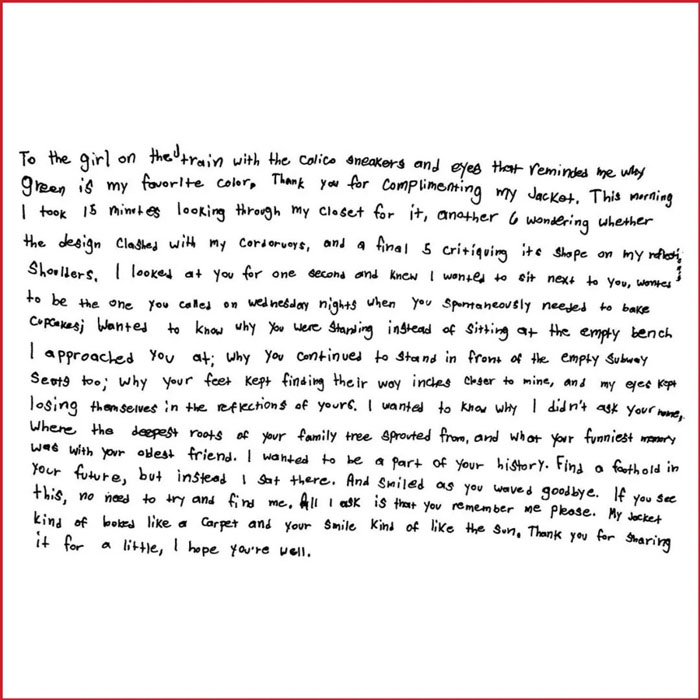 To the girl on the J train with the calico sneakers and eyes that reminded me why
green is my favorite color, Thank you for complimenting my jacket. This morning
I took 15 minutes looking through my closet for it, another 6 wondering whether
the design clashed with my corduroys, and a final 5 critiquing its shape on my
shoulders. I looked at you for one second and knew I wanted to sit next to you, wanted
to be the one you called on wednesday nights when you spontaneously needed to bake
cupcakes; wanted to know why you were standing instead of sitting at the empty bench
I approached you at; why you continued to stand in front of the empty subway
seats too; why your feet kept finding their way inches closer to mine, and my eyes kept
losing themselves in the reflections of yours. I wanted to know why I didn't ask your name,
where the deepest roots of your family tree sprouted from, and what your funniest memory
was with your oldest friend. I wanted to be a part of your history. Find a foothold in
your future, but instead I sat there. And smiled as you waved goodbye. If you see
this, no need to try and find me. All I ask is that you remember me please. My jacket
kind of looked like a carpet and your smile kind of like the sun. Thank you for sharing
it for a little, I hope you're well.